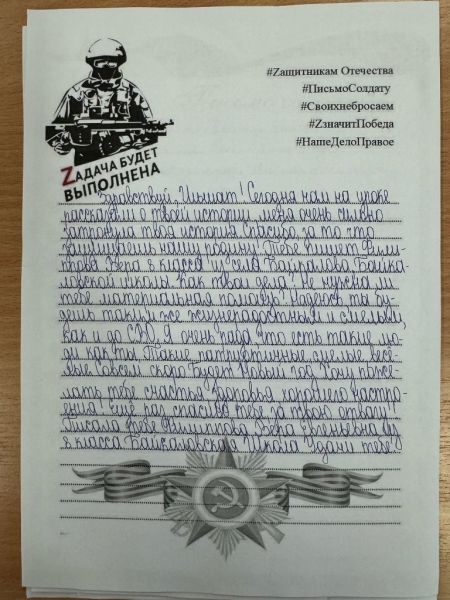 #Zащитникам Отечества
#ПисьмоСолдату
#Своихнебросаем
#ZзначитПобеда
#НашеДелоПравое
ZАДАЧА БУДЕТ
ВЫПОЛНЕНА
Здравствуй, Ильшат! Сегодня нам на уроке
рассказали о твоей истории, меня очень сильно
затронула твоя история. Спасибо за то что
защищаешь нашу родину. Тебе пишет Фили-
ппова Вера 8 класса из села Байкалова, Байка-
ловской школы. Как твои дела? Не нужна ли
тебе материальная помощь? Надеюсь ты бу-
дешь таким же жизнерадостным и смелым,
как и до СВО. Я очень рада что есть такие лю-
ди как ты. Такие патриотичные смелые весё-
лые. Совсем скоро будет Новый год. Хочу поже-
лать тебе счастья, здоровья, хорошего настро-
ения! Ещё раз спасибо тебе за твою отвагу!
Писала тебе Филиппова Вера Евгеньевна из
8 класса Байкаловская школа. Удачи тебе!